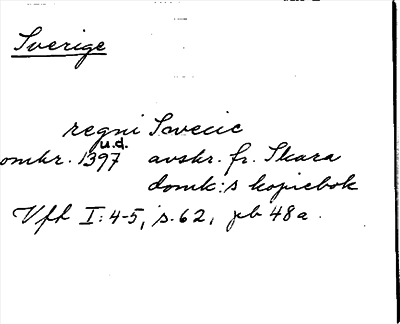 Sverige
regni Swecie
u.d.
omkr. 1397 avskr. fr. Skara
domk:s kopiebok
Vfh I:4-5, s. 62, pb 48a.